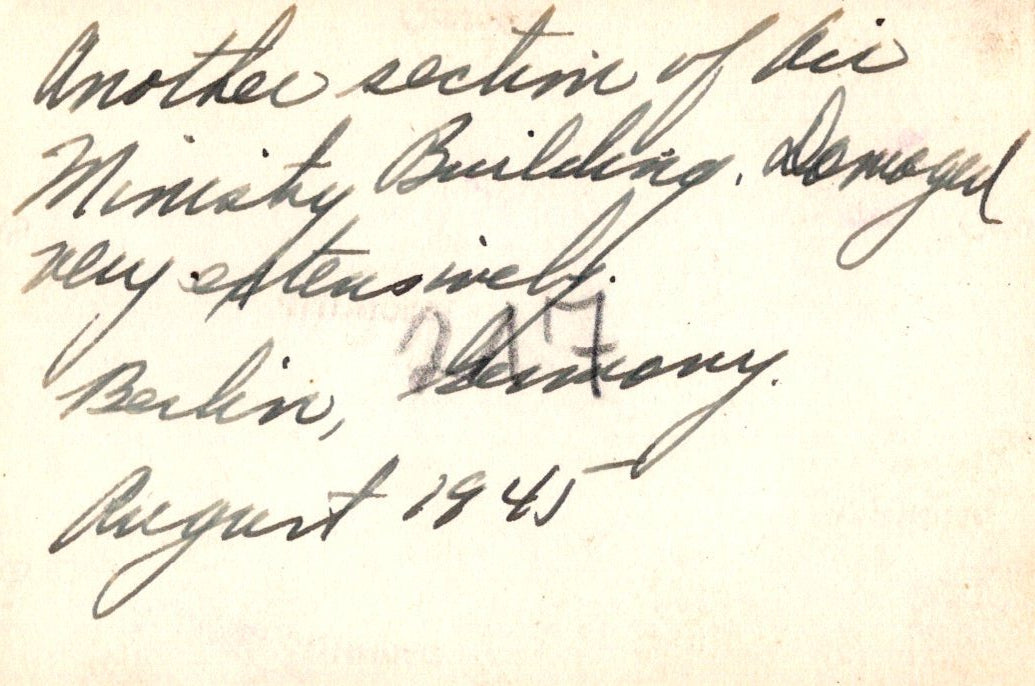 Another section of Air
Ministry Building. Damaged
very extensively.
247
Berlin, Germany.
August 1945